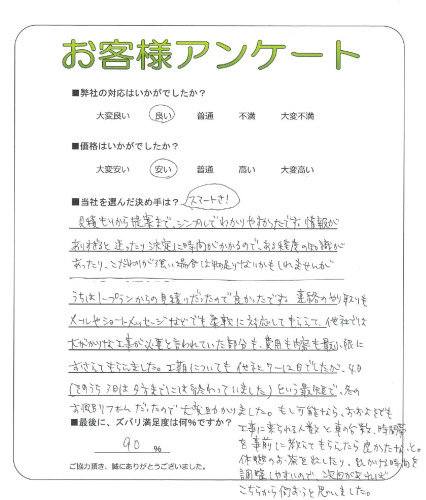 お客様アンケート
■弊社の対応はいかがでしたか？
大変良い 良い 普通 不満 大変不満
■価格はいかがでしたか？
大変安い 安い 普通 高い 大変高い
■当社を選んだ決め手は？ スマートさ！
見積もりから提案まで、シンプルでわかりやすかったです。情報が
ありすぎると迷ったり決定に時間がかかるので、ある程度の知識が
あったり、こだわりが強い場合は物足りないかもしれませんが
うちは1プランからの見積りだったので良かったですね 連絡のやり取りも
メールやショートメッセージなどでも柔軟に対応してもらえて、他社では
大がかりな工事が必要と言われていた部分も、費用も内容も最小限に
おさえてもらえました。工期についても他社7〜12日でしたが、4日
(そのうち3日は夕方までには終わっていました)という最短で、冬の
お風呂リフォームだったので大変助かりました。もし可能なら、おおよそでも
■最後に、ズバリ満足度は何％ですか？
90 ％
工事に来られる人数と車の台数、時間帯
を事前に教えてもらえたら良かったなと。
休憩のお茶を出したり、出かける時間を
調整しやすいので、次回があれば
こちらから伺おうと思いました。
ご協力頂き、誠にありがとうございました。